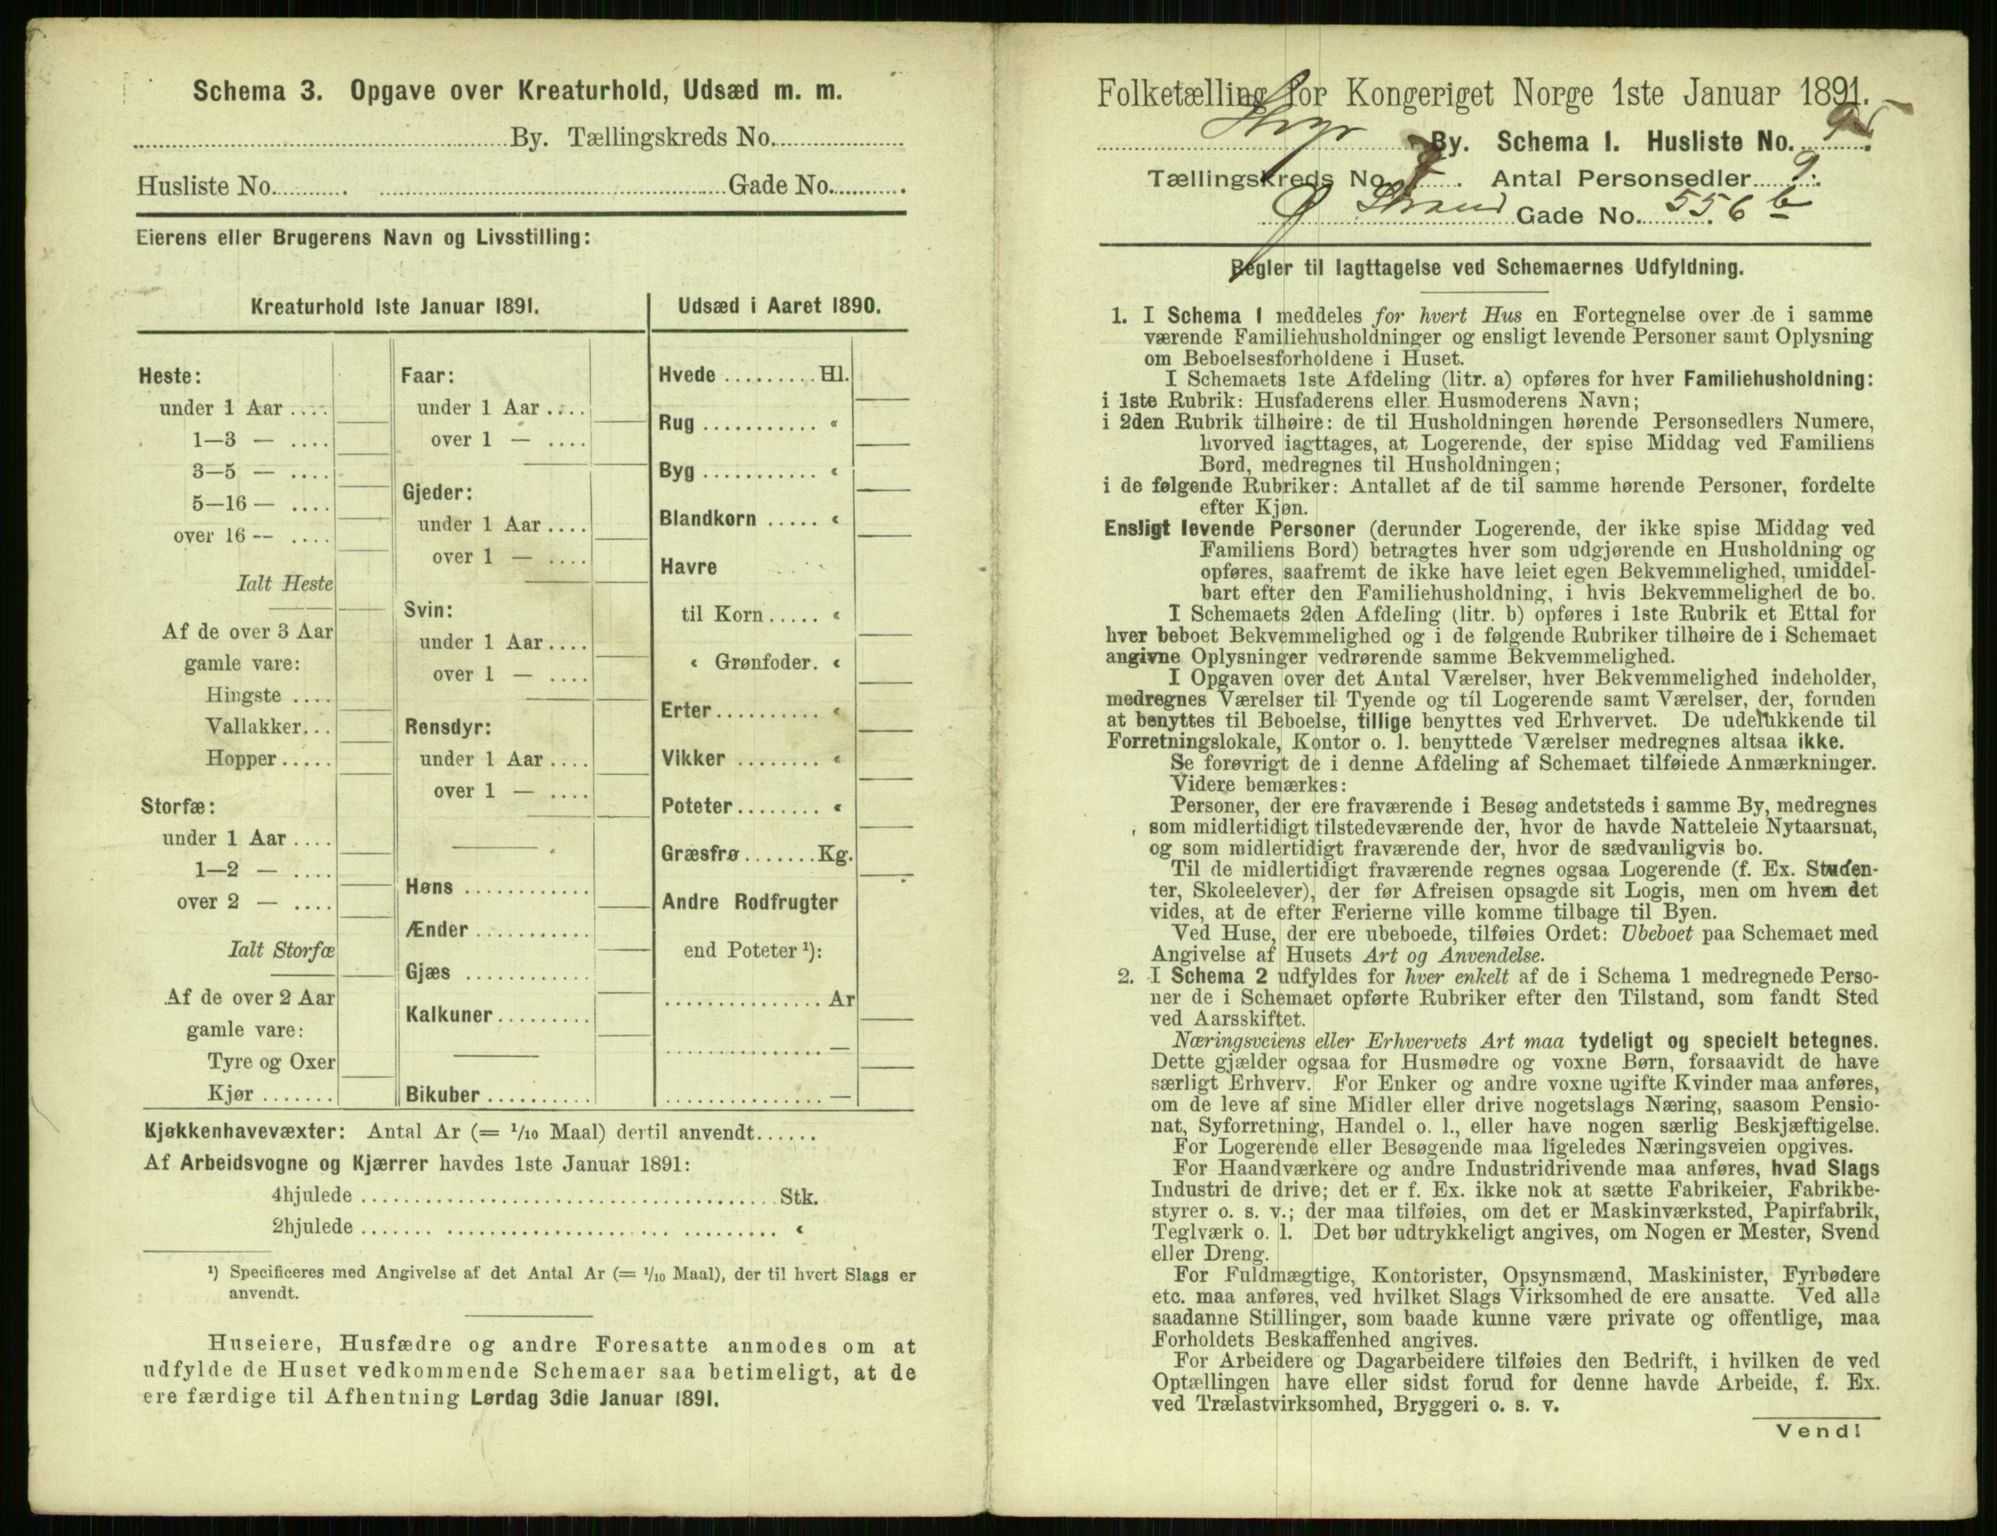 Schema 3. Opgave over Kreaturhold, Udsæd m. m.
By. Tællingskreds No.
Husliste No. Gade No.
Eierens eller Brugerens Navn og Livsstilling:
Kreaturhold 1ste Januar 1891.
Heste:
under 1 Aar ....
1—3 — ....
3—5 — ....
5—16 — ....
over 16 -- ....
Ialt Heste
Af de over 3 Aar
gamle vare:
Hingste ....
Vallakker...
Hopper .....
Storfæ:
under 1 Aar ....
1—2 — ....
over 2 — ....
Ialt Storfæ
Af de over 2 Aar
gamle vare:
Tyre og Oxer
Kjør .......
Faar:
under 1 Aar ....
over 1 — ....
Gjeder:
under 1 Aar ....
over 1 — ....
Svin:
under 1 Aar ....
over 1 — ....
Rensdyr:
under 1 Aar ....
over 1 — ....
Høns ............
Ænder ...........
Gjæs ............
Kalkuner .........
Bikuber ..........
Udsæd i Aaret 1890.
Hvede ......... Hl.
Rug ........... «
Byg ........... «
Blandkorn ..... «
Havre
til Korn ..... «
« Grønfoder. «
Erter .......... «
Vikker ........ «
Poteter ........ «
Græsfrø ....... Kg.
Andre Rodfrugter
end Poteter ¹):
............... Ar
............... —
............... —
Kjøkkenhavevæxter: Antal Ar (= 1/10 Maal) dertil anvendt ......
Af Arbeidsvogne og Kjærrer havdes 1ste Januar 1891:
4hjulede ...................................... Stk.
2hjulede ...................................... «
¹) Specificeres med Angivelse af det Antal Ar (= 1/10 Maal), der til hvert Slags er
anvendt.
Huseiere, Husfædre og andre Foresatte anmodes om at
udfylde de Huset vedkommende Schemaer saa betimeligt, at de
ere færdige til Afhentning Lørdag 3die Januar 1891.
Folketælling for Kongeriget Norge 1ste Januar 1891.
By. Schema 1. Husliste No. 95.
Tællingskreds No. 7. Antal Personsedler 9.
Ø Strand Gade No. 556 b
Regler til Iagttagelse ved Schemaernes Udfyldning.
1. I Schema 1 meddeles for hvert Hus en Fortegnelse over de i samme
værende Familiehusholdninger og ensligt levende Personer samt Oplysning
om Beboelsesforholdene i Huset.
I Schemaets 1ste Afdeling (litr. a) opføres for hver Familiehusholdning:
i 1ste Rubrik: Husfaderens eller Husmoderens Navn;
i 2den Rubrik tilhøire: de til Husholdningen hørende Personsedlers Numere,
hvorved iagttages, at Logerende, der spise Middag ved Familiens
Bord, medregnes til Husholdningen;
i de følgende Rubriker: Antallet af de til samme hørende Personer, fordelte
efter Kjøn.
Ensligt levende Personer (derunder Logerende, der ikke spise Middag ved
Familiens Bord) betragtes hver som udgjørende en Husholdning og
opføres, saafremt de ikke have leiet egen Bekvemmelighed, umiddel-
bart efter den Familiehusholdning, i hvis Bekvemmelighed de bo.
I Schemaets 2den Afdeling (litr. b) opføres i 1ste Rubrik et Ettal for
hver beboet Bekvemmelighed og i de følgende Rubriker tilhøire de i Schemaet
angivne Oplysninger vedrørende samme Bekvemmelighed.
I Opgaven over det Antal Værelser, hver Bekvemmelighed indeholder,
medregnes Værelser til Tyende og til Logerende samt Værelser, der, foruden
at benyttes til Beboelse, tillige benyttes ved Erhvervet. De udelukkende til
Forretningslokale, Kontor o. l. benyttede Værelser medregnes altsaa ikke.
Se forøvrigt de i denne Afdeling af Schemaet tilføiede Anmærkninger.
Videre bemærkes:
Personer, der ere fraværende i Besøg andetsteds i samme By, medregnes
som midlertidigt tilstedeværende der, hvor de havde Natteleie Nytaarsnat,
og som midlertidigt fraværende der, hvor de sædvanligvis bo.
Til de midlertidigt fraværende regnes ogsaa Logerende (f. Ex. Studen-
ter, Skoleelever), der før Afreisen opsagde sit Logis, men om hvem det
vides, at de efter Ferierne ville komme tilbage til Byen.
Ved Huse, der ere ubeboede, tilføies Ordet: Ubeboet paa Schemaet med
Angivelse af Husets Art og Anvendelse.
2. I Schema 2 udfyldes for hver enkelt af de i Schema 1 medregnede Perso-
ner de i Schemaet opførte Rubriker efter den Tilstand, som fandt Sted
ved Aarsskiftet.
Næringsveiens eller Erhvervets Art maa tydeligt og specielt betegnes.
Dette gjælder ogsaa for Husmødre og voxne Børn, forsaavidt de have
særligt Erhverv. For Enker og andre voxne ugifte Kvinder maa anføres,
om de leve af sine Midler eller drive nogetslags Næring, saasom Pensio-
nat, Syforretning, Handel o. l., eller have nogen særlig Beskjæftigelse.
For Logerende eller Besøgende maa ligeledes Næringsveien opgives.
For Haandværkere og andre Industridrivende maa anføres, hvad Slags
Industri de drive; det er f. Ex. ikke nok at sætte Fabrikeier, Fabrikbe-
styrer o. s. v.; der maa tilføies, om det er Maskinværksted, Papirfabrik,
Teglværk o. l. Det bør udtrykkeligt angives, om Nogen er Mester, Svend
eller Dreng.
For Fuldmægtige, Kontorister, Opsynsmænd, Maskinister, Fyrbødere
etc. maa anføres, ved hvilket Slags Virksomhed de ere ansatte. Ved alle
saadanne Stillinger, som baade kunne være private og offentlige, maa
Forholdets Beskaffenhed angives.
For Arbeidere og Dagarbeidere tilføies den Bedrift, i hvilken de ved
Optællingen have eller sidst forud for denne havde Arbeide, f. Ex.
ved Trælastvirksomhed, Bryggeri o. s. v.
Vend!